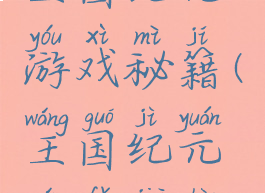 yóu xì mì jí
游戏秘籍(
wáng guó jì yuán
王国纪元